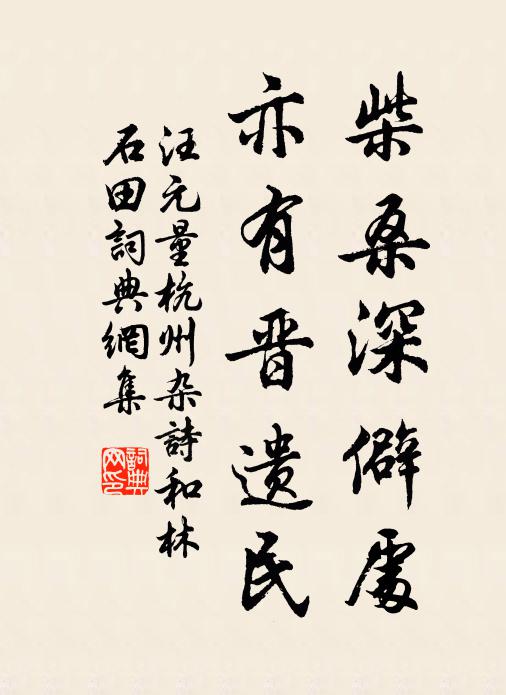 柴桑深僻處
亦有晋遗民
汪元量杭州杂詩和林
石田詞典網集
詞典网印